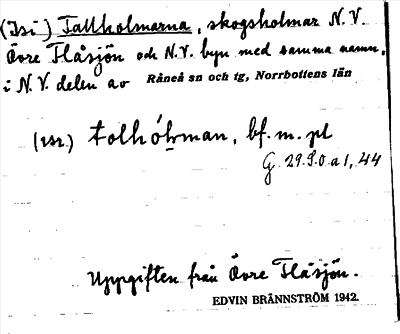 (Isi) Tallholmarna, skogsholmar N.V.
Övre Flåsjön och N.V. byn med samma namn,
i N.V. delen av Råneå sn och tg, Norrbottens län
(isr.) tolhólman, bf. m. pl
G. 29.9.0.a1, 44
Uppgiften från Övre Flåsjön.
EDVIN BRÄNNSTRÖM 1942.